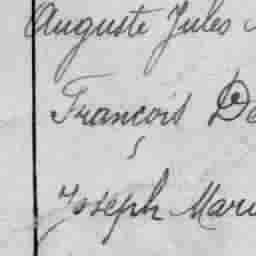 Auguste Jules
Francois De
Joseph Mari